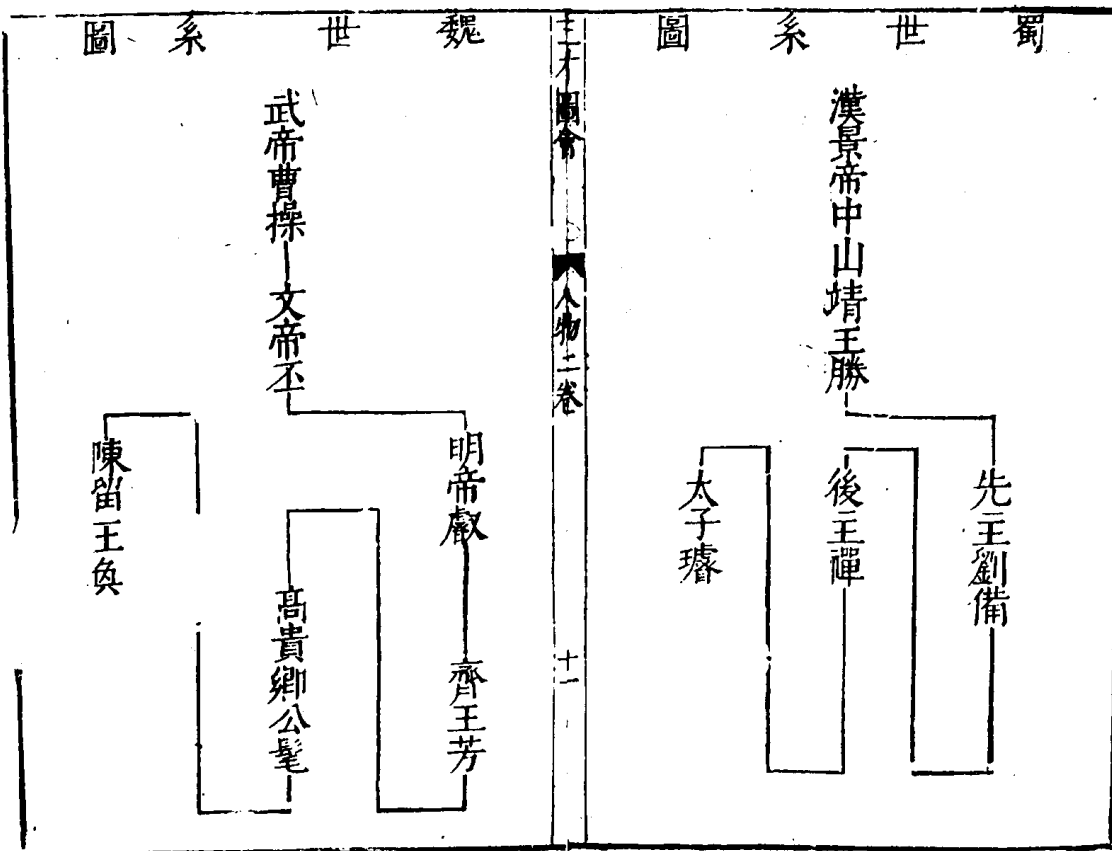 蜀世系圖
漢景帝中山靖王勝
先王劉備
後王禪
太子璿
三才圖會
人物二卷
十一
魏世系圖
武帝曹操
文帝丕
明帝叡
齊王芳
高貴卿公髦
陳留王奐